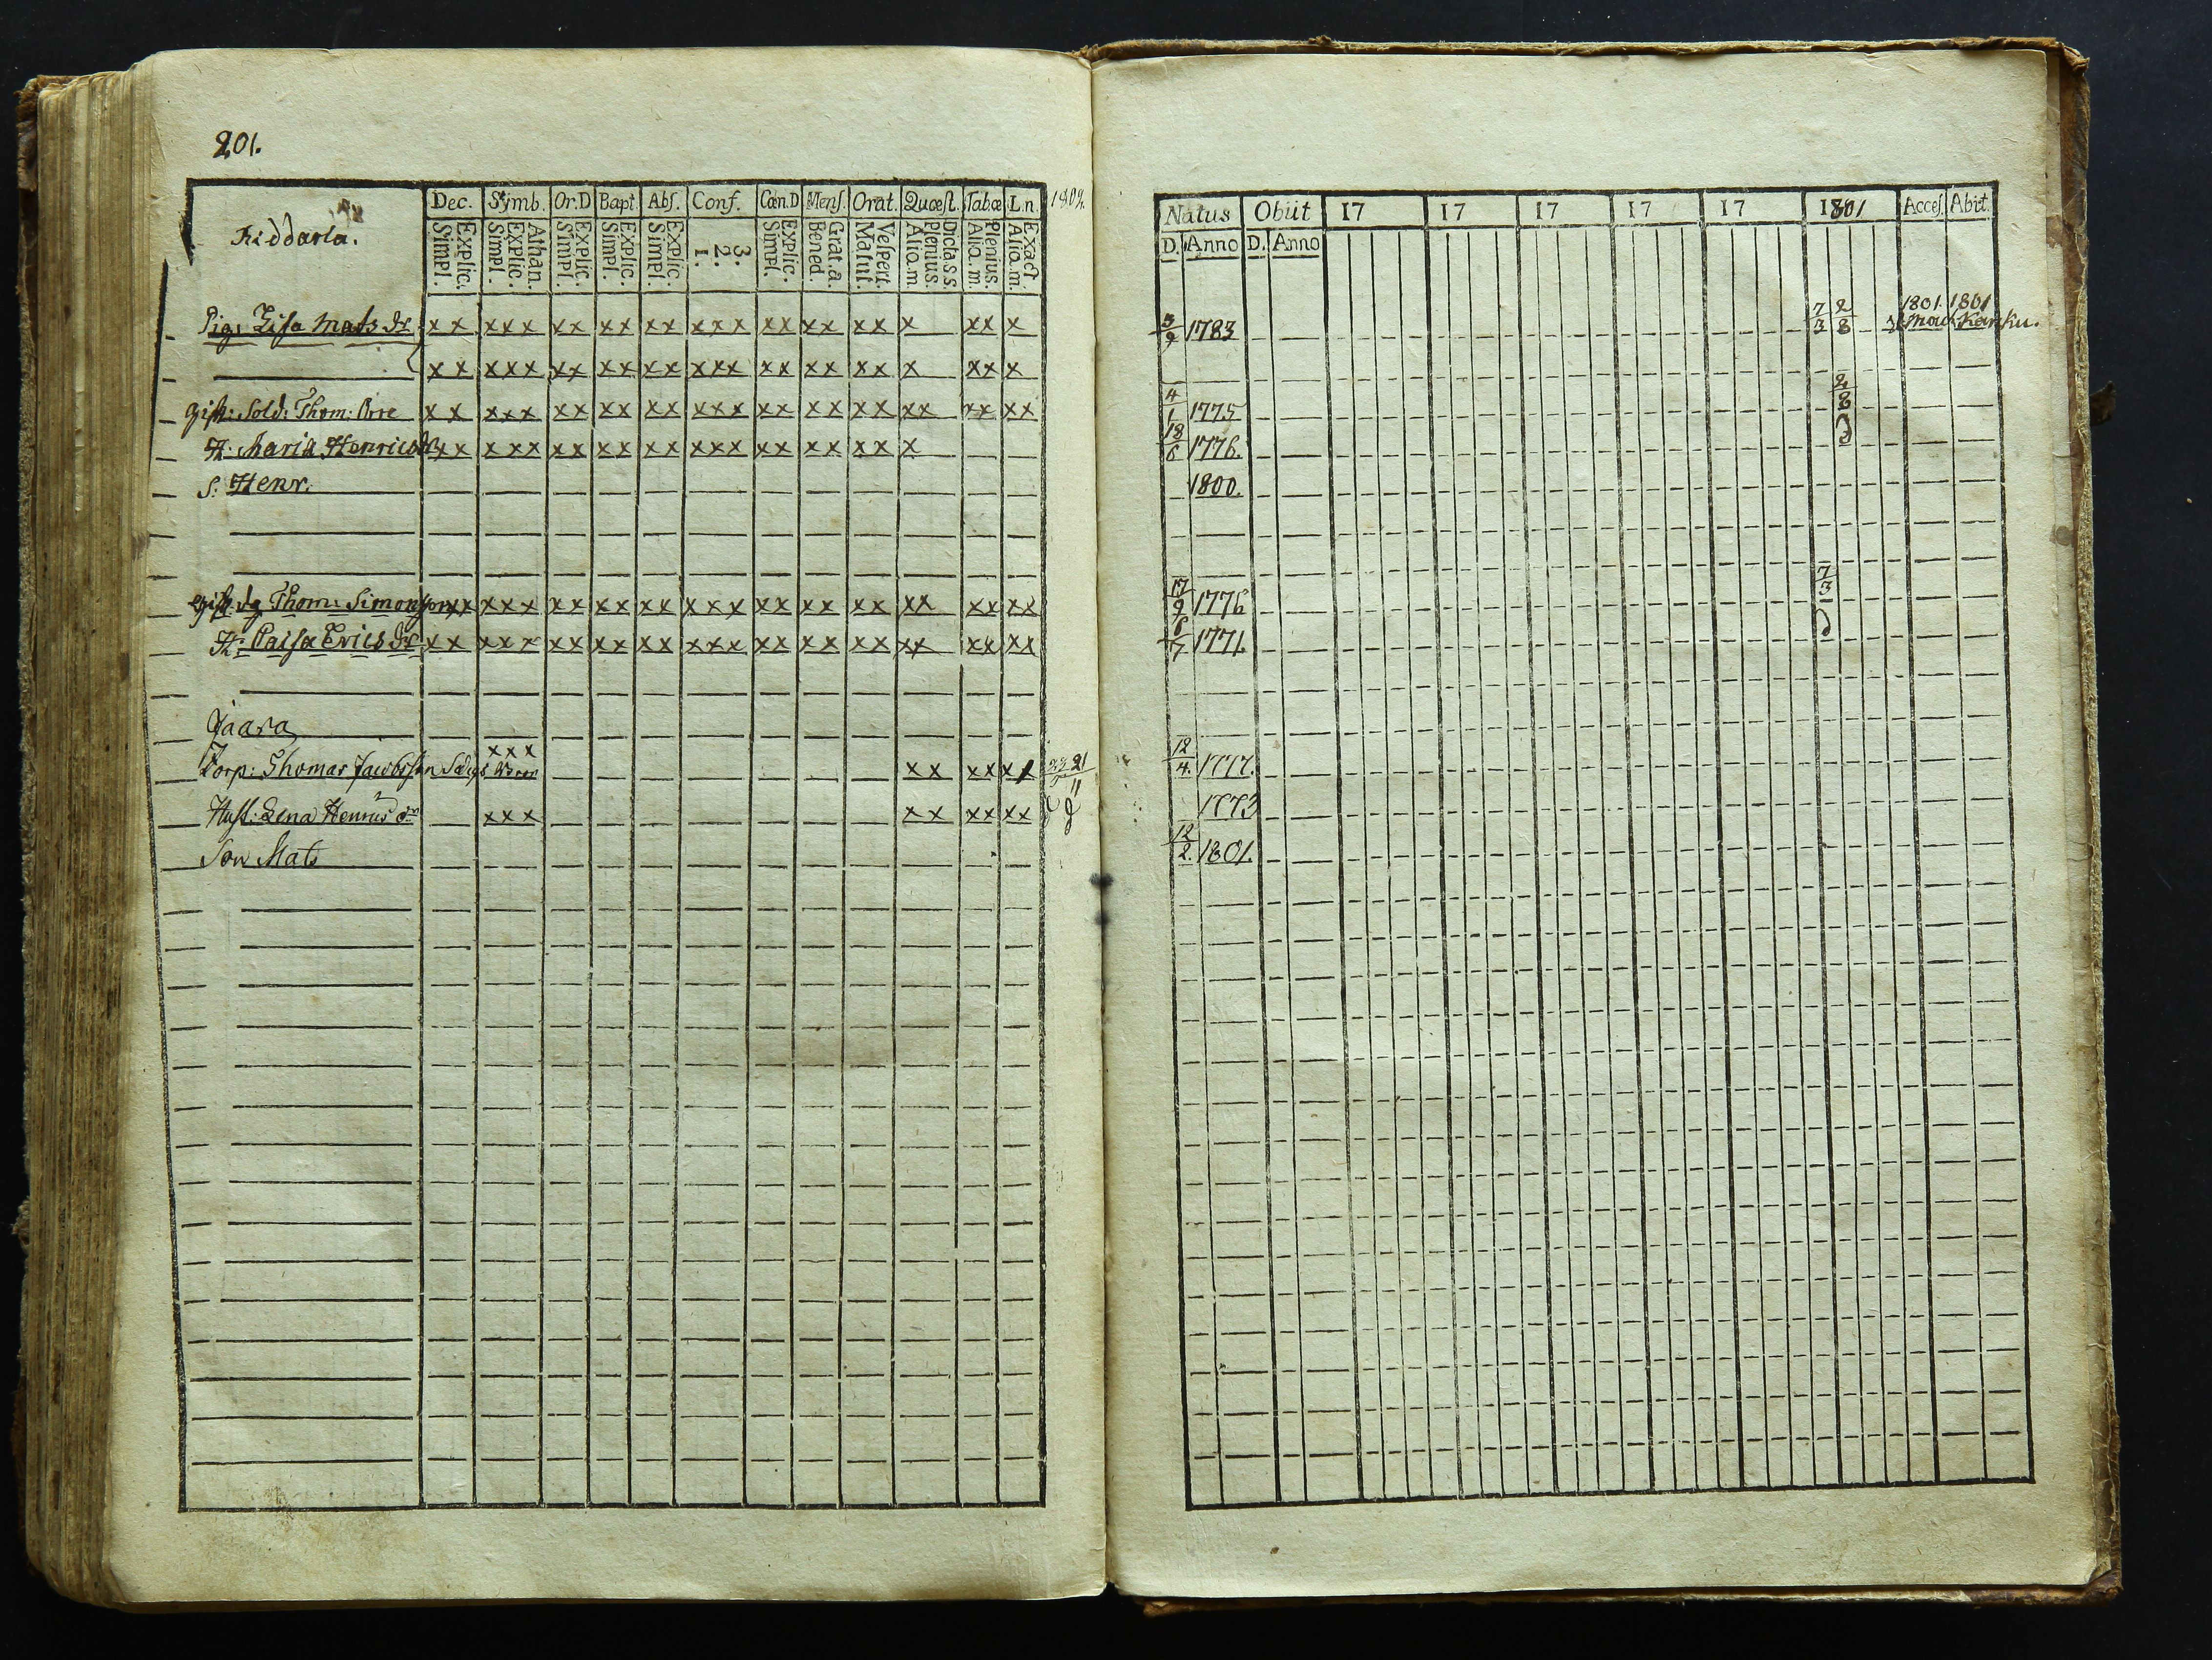 201.
Dec. Simb. Or.D Bapt. Abſ. Conf. Cœn.D Menſ. Orat. Quœſt. Tabœ L.n 1802.
Riddarla.
Explic. Simpl. Athan. Explic. Simpl. Explic. Simpl. Explic. Simpl. Explic. Simpl. 3. 2. 1. Explic. Simpl. Grat. a. Bened. Veſpert. Matut. Dicta S.S. Plenius. Alio.m Plenius. Alio.m. Exact Alio.m.
Pig: Lisa Mats dr x x x x x x x x x x x x x x x x x x x x x x x x x
x x x x x x x x x x x x x x x x x x x x x x x x x
gift: Sold: Thom: Orre x x x x x x x x x x x x x x x x x x x x x x x x x x x
H: Maria Henricsdr x x x x x x x x x x x x x x x x x x x x x x
S. Henr.
gift. dg Thom: Simonson x x x x x x x x x x x x x x x x x x x x x x x x x x x
H: Caisa Erics dr x x x x x x x x x x x x x x x x x x x x x x x x x x x
Jaara
x x x
Torp: Thomas Jacobsson x x x x x x
Hust: Lena Henrics dr x x x x x x x x x
Son Mats
Natus Obiit 17 17 17 17 17 1801 Acceſ. Abiit.
D. Anno D. Anno
3/9 1783 7/3 2/8 1801. 1801 Karku.
4/1 1775 2/8
18/6 1776.
1800.
17/9 1776 7/3
6/7 1771.
12/4. 1777.
1773
12/2. 1801.